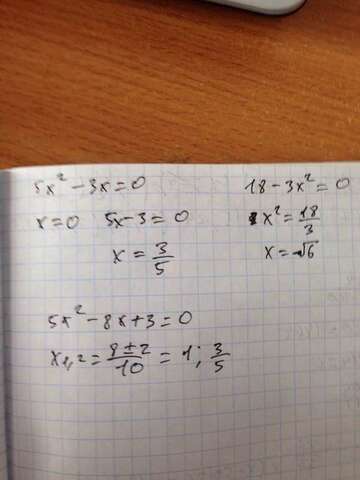 5x² - 3x = 0
x = 0  5x - 3 = 0
x = 3/5
18 - 3x² = 0
x² = 18/3
x = √6
5x² - 8x + 3 = 0
x₁,₂ = (8 ± 2)/10 = 1; 3/5